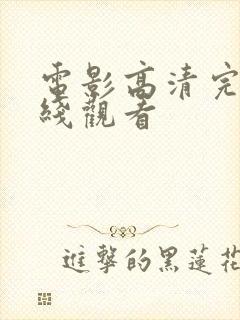 電影高清完
綫觀看
進擊的黑蓮花